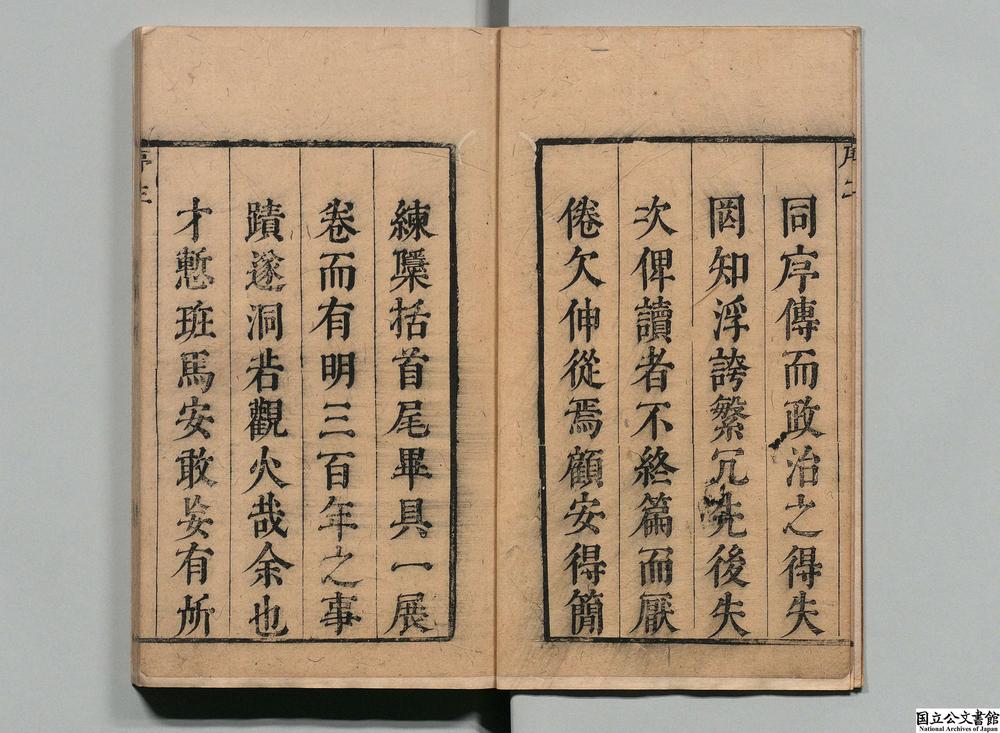 序二
同序傳而政治之得失
罔知浮誇繁冗先後失
次俾讀者不終篇而厭
倦欠伸從焉顧安得簡
練檃括首尾畢具一展
卷而有明三百年之事
蹟遂洞若觀火哉余也
才慙班馬安敢妄有所
序三
国立公文書館
National Archives of Japan